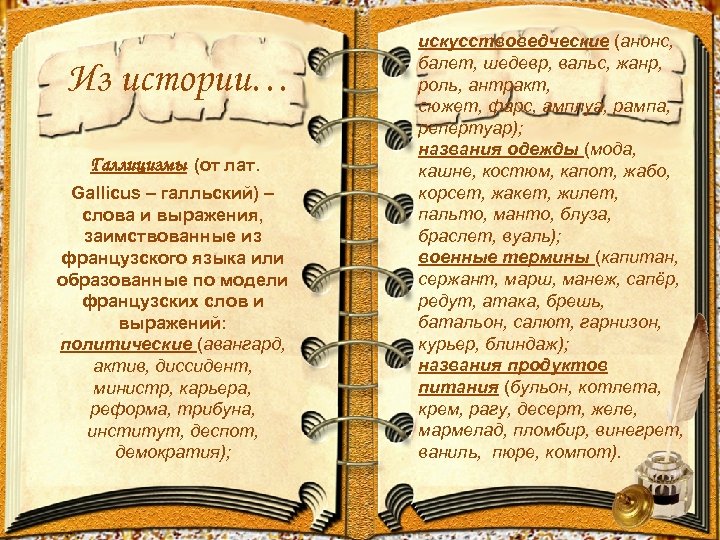 Из истории…
Галлицизмы (от лат.
Gallicus – галльский) –
слова и выражения,
заимствованные из
французского языка или
образованные по модели
французских слов и
выражений:
политические (авангард,
актив, диссидент,
министр, карьера,
реформа, трибуна,
институт, деспот,
демократия);
искусствоведческие (анонс,
балет, шедевр, вальс, жанр,
роль, антракт,
сюжет, фарс, амплуа, рампа,
репертуар);
названия одежды (мода,
кашне, костюм, капот, жабо,
корсет, жакет, жилет,
пальто, манто, блуза,
браслет, вуаль);
военные термины (капитан,
сержант, марш, манеж, сапёр,
редут, атака, брешь,
батальон, салют, гарнизон,
курьер, блиндаж);
названия продуктов
питания (бульон, котлета,
крем, рагу, десерт, желе,
мармелад, пломбир, винегрет,
ваниль, пюре, компот).